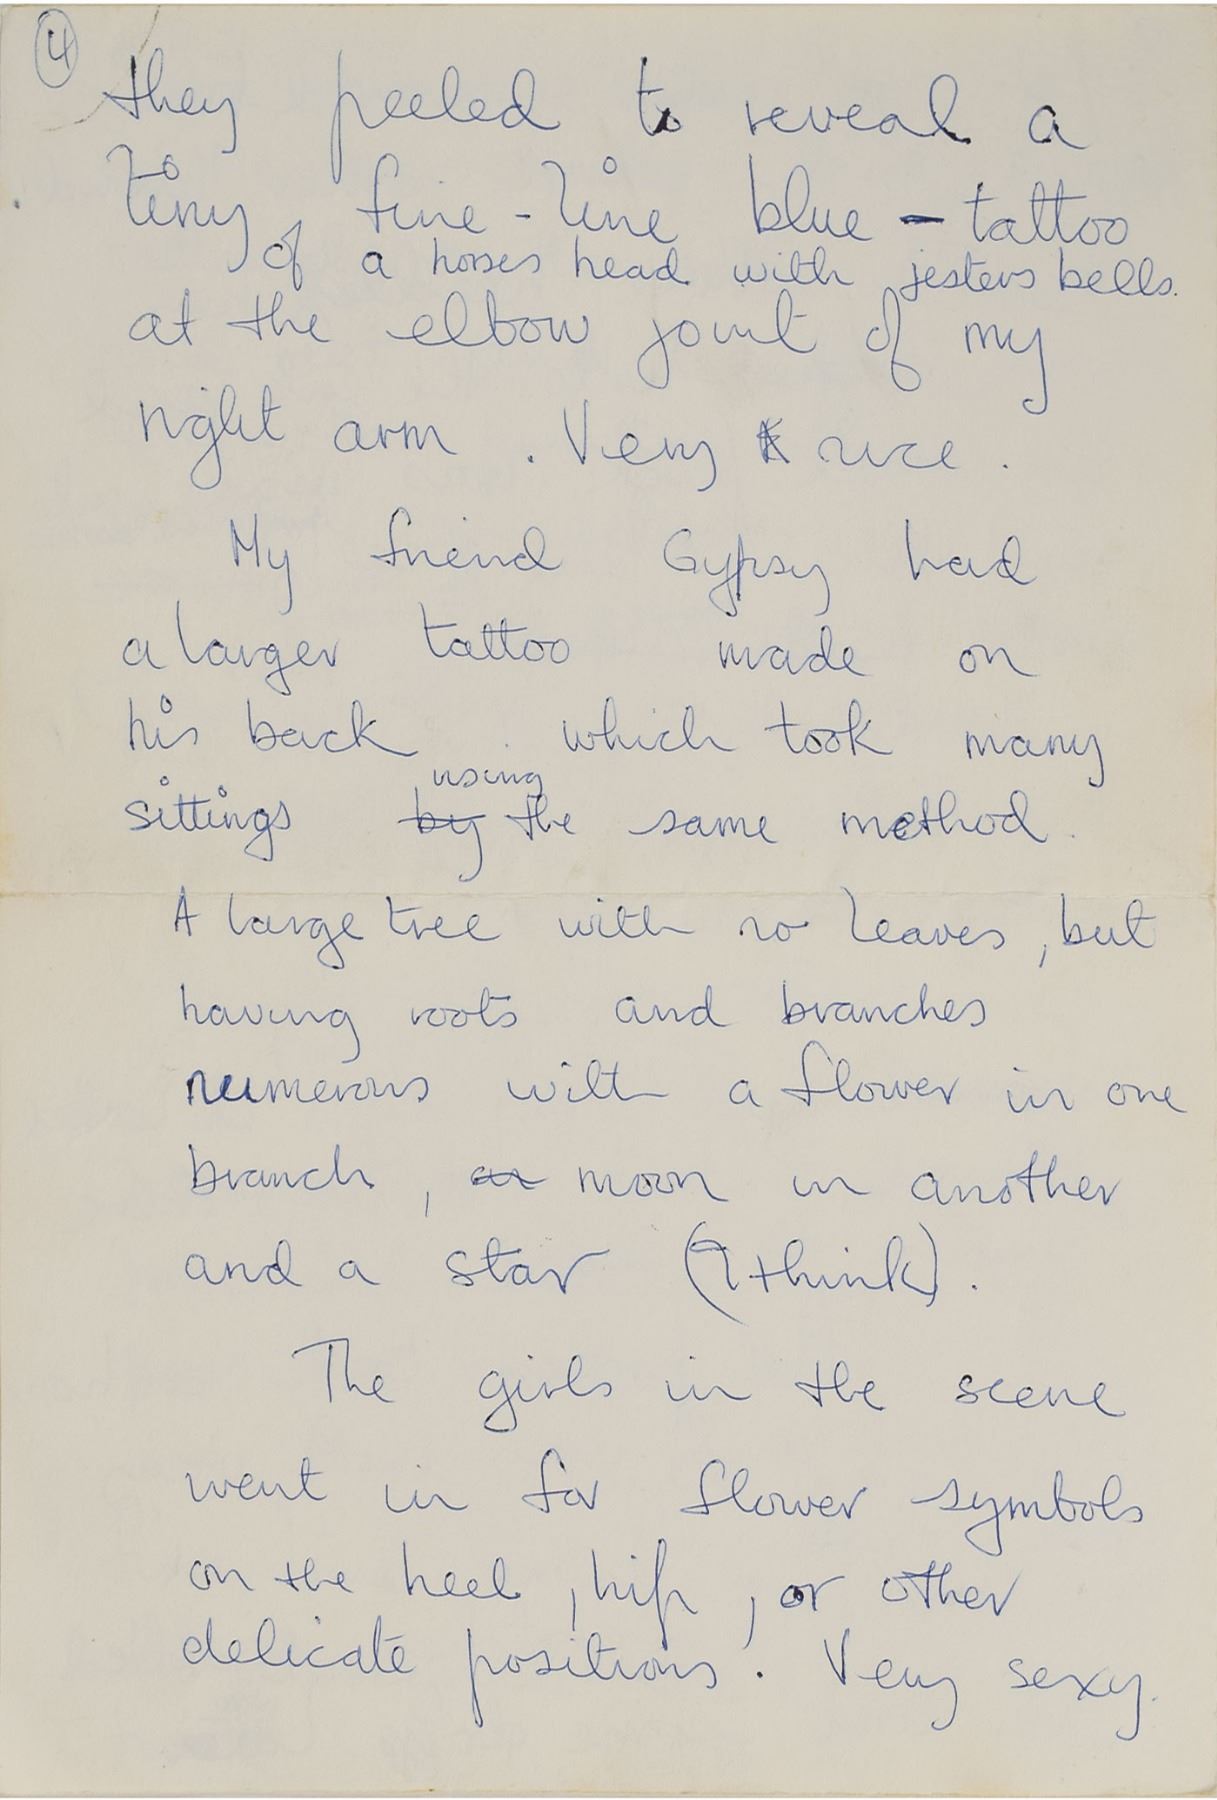 4
they peeled to reveal a
tiny fine-line blue - tattoo
of a horses head with jesters bells.
at the elbow joint of my
right arm. Very nice.
My friend Gypsy had
a larger tattoo made on
his back which took many
using
sittings by the same method.
A large tree with no leaves, but
having roots and branches
numerous with a flower in one
branch, a moon in another
and a star (I think).
The girls in the scene
went in for flower symbols
on the heel, hip, or other
delicate positions. Very sexy.